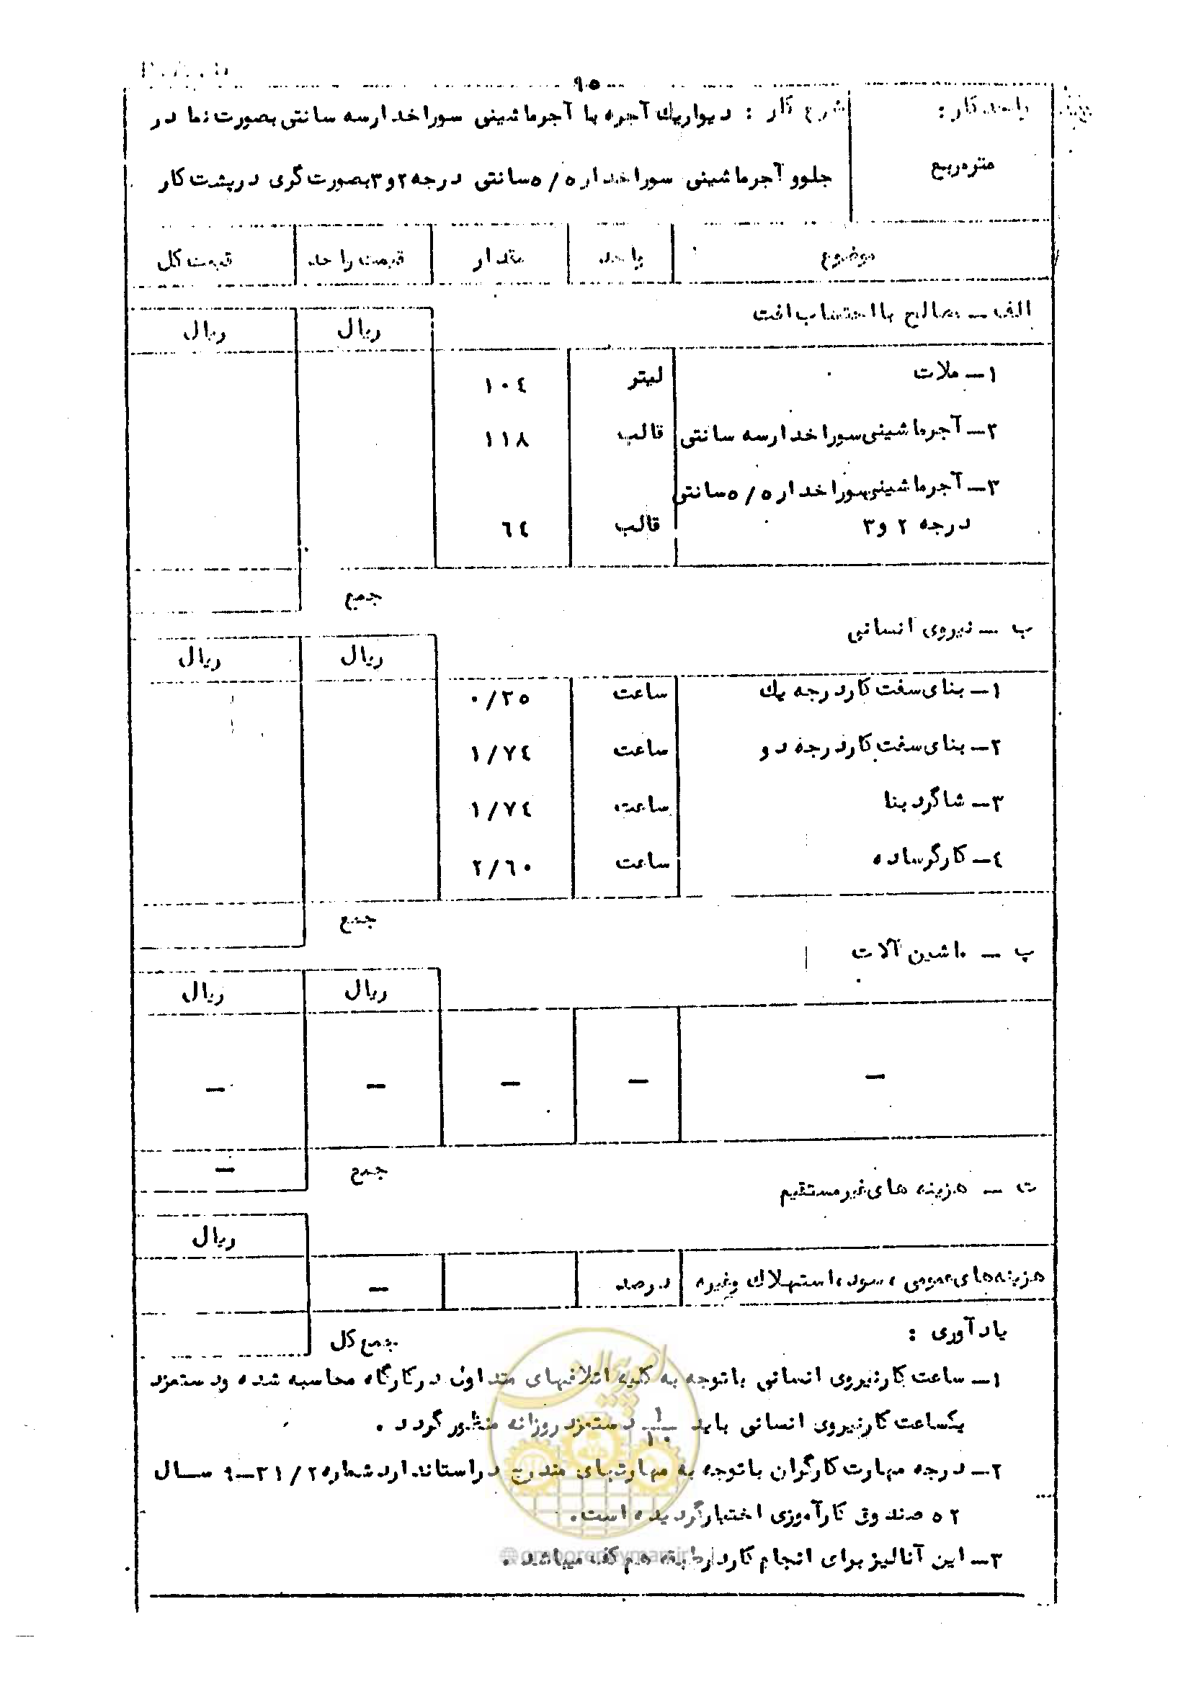 ٩٥
واحد کار :
شرح کار : دیوار یك آجره با آجرماشینی سوراخدار سه سانتی بصورت نما در
مترمربع
جلوو آجرماشینی سوراخدار ٥/٥ سانتی درجه ٢و٣ بصورت گری در پشت کار
موضوع واحد مقدار قیمت واحد قیمت کل
الف ــ مصالح با احتساب افت
ریال ریال
١ــ ملات لیتر ١٠٤
٢ــ آجرماشینی سوراخدار سه سانتی قالب ١١٨
٣ــ آجرماشینی سوراخدار ٥/٥ سانتی
درجه ٢ و٣ قالب ٦٤
جمع
ب ــ نیروی انسانی
ریال ریال
١ــ بنای سفت کار درجه یك ساعت ٠/٢٥
٢ــ بنای سفت کار درجه دو ساعت ١/٧٤
٣ــ شاگرد بنا ساعت ١/٧٤
٤ــ کارگر ساده ساعت ٢/٦٠
جمع
پ ــ ماشین آلات
ریال ریال
ــ ــ ــ ــ ــ
جمع ــ
ت ــ هزینه های غیر مستقیم
ریال
هزینه‌های عمومی ، سود ، استهلاك وغیره درصد ــ
جمع کل
یادآوری :
١ــ ساعت کار نیروی انسانی باتوجه به کلیه اتلافهای متداول در کارگاه محاسبه شده و دستمزد
یکساعت کار نیروی انسانی باید ١/١٠ دستمزد روزانه منظور گردد .
٢ــ درجه مهارت کارگران باتوجه به مهارتهای مندرج در استاندارد شماره ٢/٣١ــ٩ ســال
٥٢ صندوق کارآموزی اختیار گردیده است.
٣ــ این آنالیز برای انجام کار در طبقه هم کف میباشد .
امور پیمان
@omoorepeyman.ir